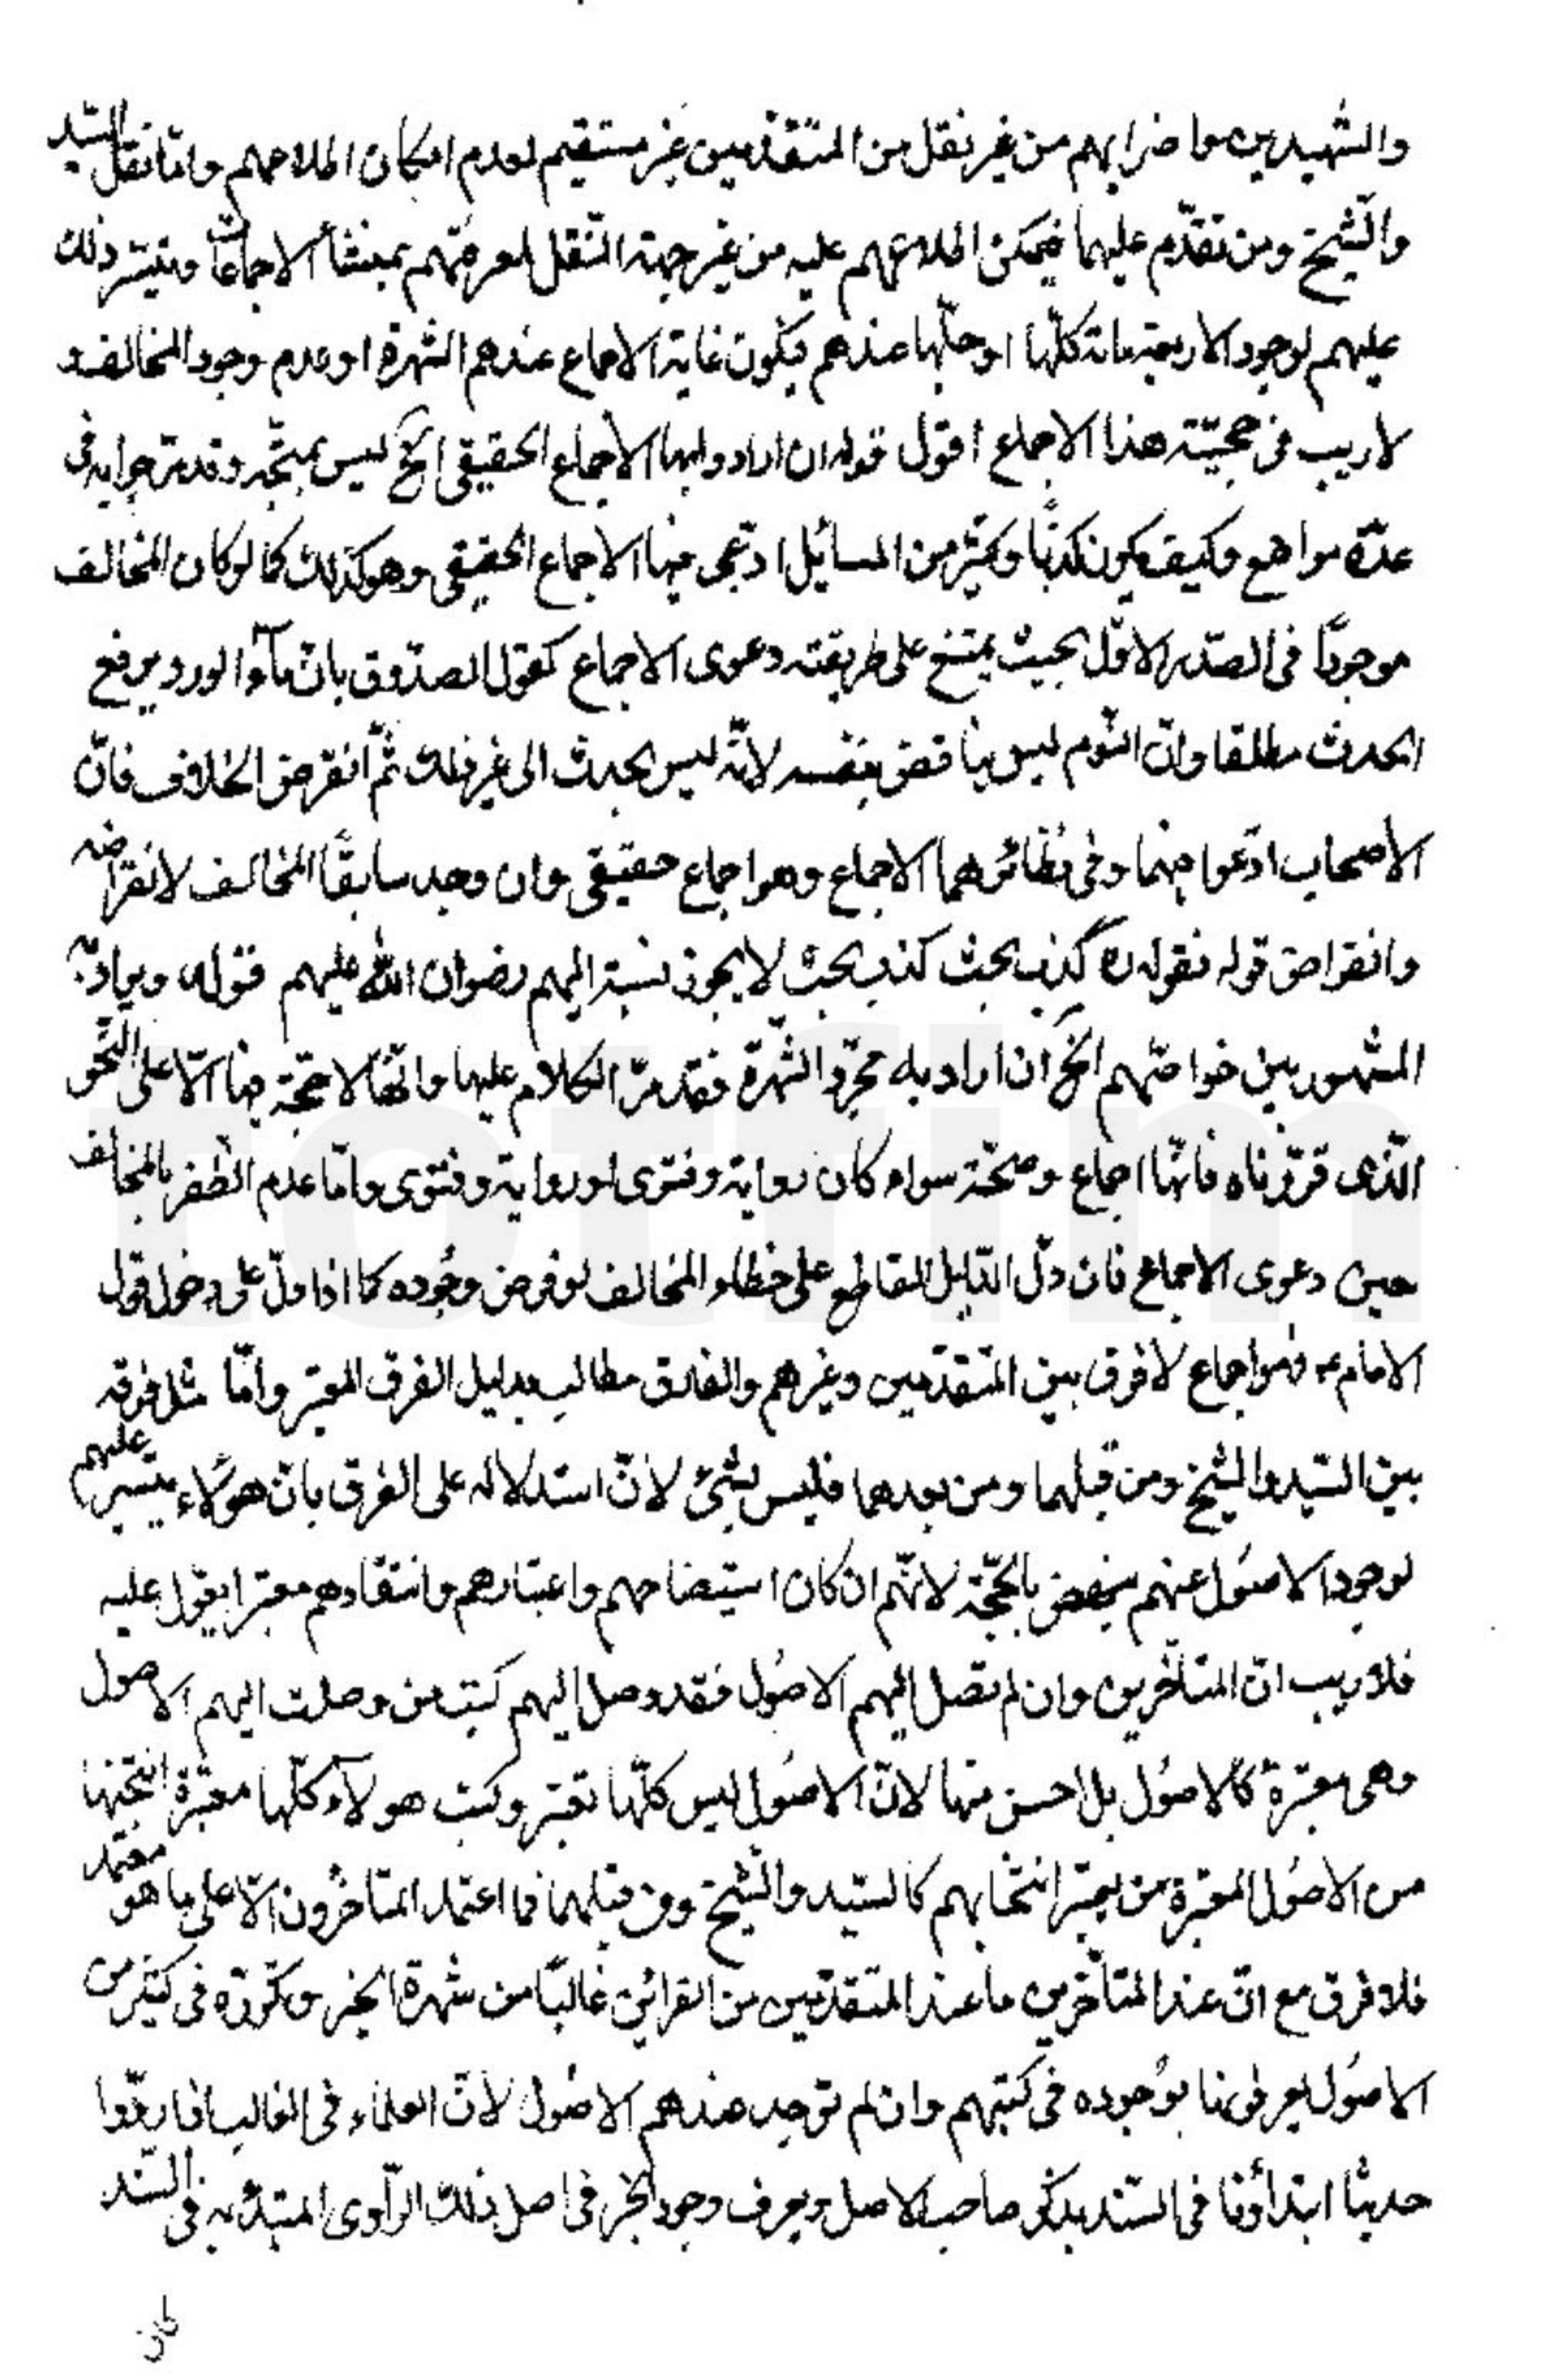 والشهيدين واضرابهم من غير نقل من المتقدّمين غير مستقيم لعدم امكان اطلاعهم وامّا نقل السّيد
والشّيخ ومن تقدّم عليهما فيمكن اطلاعهم عليه من غير جهة النّقل لمعرفتهم بمنشأ الاجماعات وتيسّر ذلك
عليهم لوجود الاربعمائة كلّها او جلّها عندهم فيكون غاية الاجماع عندهم الشهرة او عدم وجود المخالف و
لا ريب فى حجيّة هذا الاجماع اقول قوله ان ارادوا بها الاجماع الحقيقى الخ ليس بمتّجه وقد مرّ جوابه فى
عدّة مواضع وكيف يكون كذبًا وكثير من المسائل ادّعى فيها الاجماع الحقيقى وهو كذلك كما لو كان المخالف
موجودًا فى الصّدر الاوّل بحيث يمتنع على طريقته دعوى الاجماع كقول الصدّوق بانّ مآء الورد يرفع
الحدث مطلقا وانّ النّوم ليس بناقض بنفسه لانّه ليس بحدث الى غير ذلك ثمّ انقرض الخلاف فانّ
الاصحاب ادّعوا فيهما وفى نظائرهما الاجماع وهو اجماع حقيقى وان وجد سابقًا المخالف لانقراضه
وانقراض قوله فقوله ره كذب بحت كذب بحت لا يجوز نسبته اليهم رضوان الله عليهم قوله ويراد به
المشهور بين خواصّهم الخ ان اراد به مجرّد الشّهرة فقد مرّ الكلام عليها وانّها لا حجّة فيها الّا على النّحو
الّذى قرّرناه فانّها اجماع وحجّة سواء كان رواية وفتوى او رواية وفتوى وامّا عدم الظّفر بالمخالف
حين دعوى الاجماع فان دلّ الدّليل القاطع على خطاء المخالف لو فرض وجُوده كما اذا دلّ على دخول قول
الامام ع فهو اجماع لا فرق بين المتقدّمين وغيرهم والفارق مطالب بدليل الفرق المعتبر وامّا مثل فرقه
بين السّيد والشّيخ ومن قبلهما ومن بعدهما فليس بشئ لانّ استدلاله على الفرق بانّ هؤلاء يتيسّر عليهم
لوجود الاصُول عندهم بالحجّة لانّهم ان كان استيضاحهم واعتبارهم وانتقادهم معتبرا يعوّل عليه
فلا ريب انّ المتأخّرين وان لم تصل اليهم الاصُول فقد وصل اليهم كتب من وصلت اليهم الاصول
وهى معتبرة كالاصُول بل احسن منها لانّ الاصُول ليس كلّها تعتبر وكتب هولآء كلّها معتبرة انتخبها
من الاصُول المعتبرة من يعتبر انتخابهم كالسّيد والشّيخ ومن قبلهما فما اعتمد المتاخّرون الّا على ما هو معتمد
فلا فرق مع انّ عند المتأخّرين ما عند المتقدّمين من القرائن غالبًا من شهرة الخبر وتكرّره فى كثير من
الاصُول بوُجوده فى كتبهم وان لم توجد عندهم الاصُول لانّ العلماء فى الغالب
حديثا ابتدأونا فى السّند بذكر صاحب الاصل ويعرف وجود الخبر فى اصل ذلك الرّاوى المبتدء به فى السّند